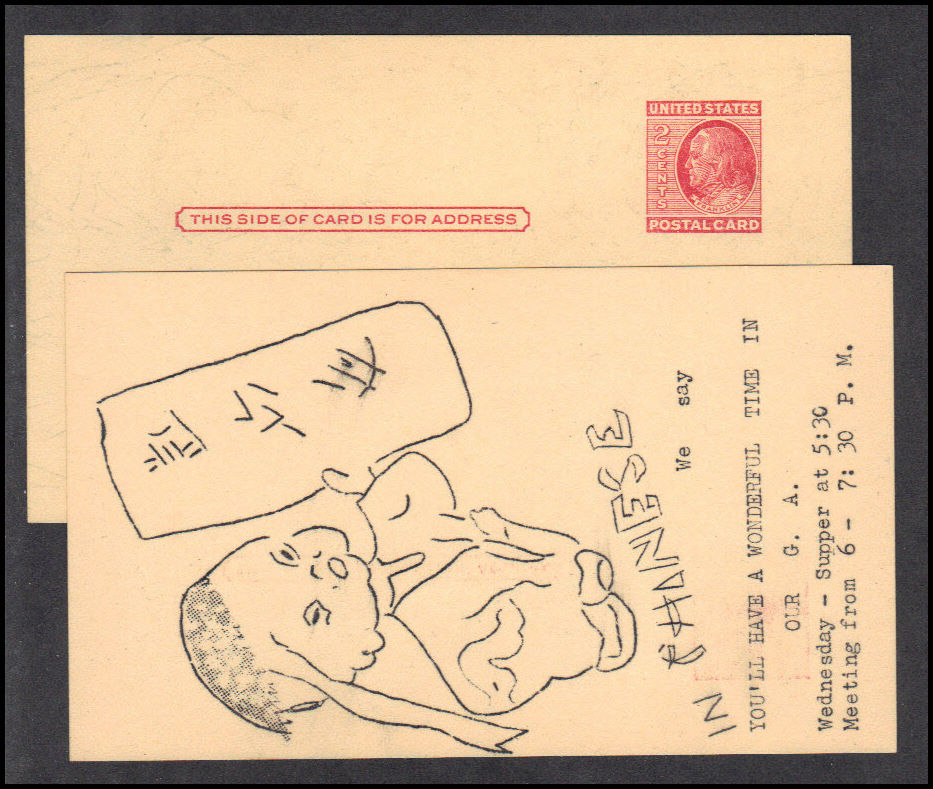 UNITED STATES
2 CENTS
FRANKLIN
POSTAL CARD
THIS SIDE OF CARD IS FOR ADDRESS
IN CHINESE
We say
YOU'LL HAVE A WONDERFUL TIME IN
OUR G. A.
Wednesday - Supper at 5:30
Meeting from 6 - 7: 30 P. M.